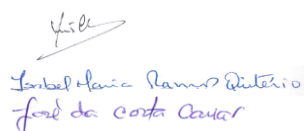 Isabel Maria Ramos Quintério
José da Costa Canar